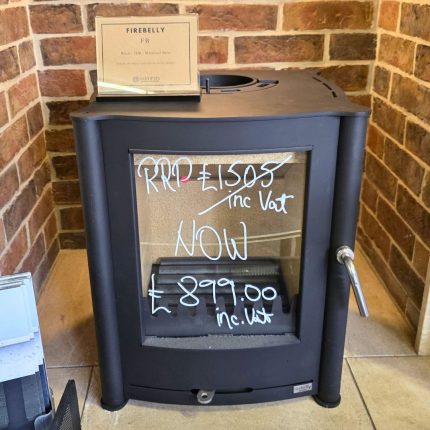 FIREBELLY
FB
RRP £1505
inc Vat
NOW
£ 899.00
inc. Vat